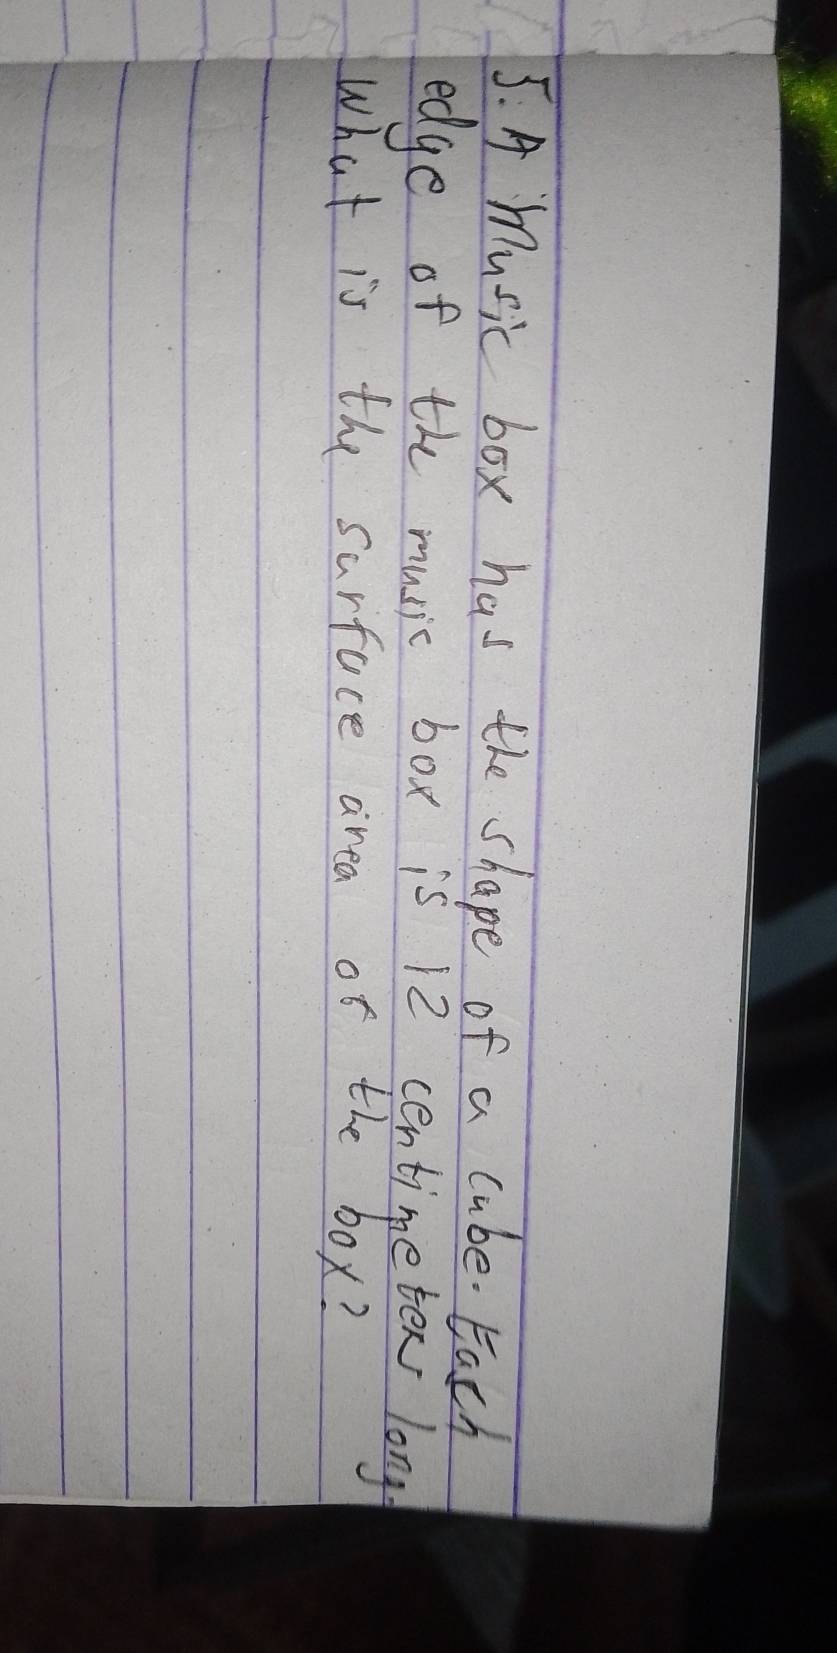 5. A Music box has the shape of a cube. Each
edge of the music box is 12 centimeters long.
What is the surface area of the box?